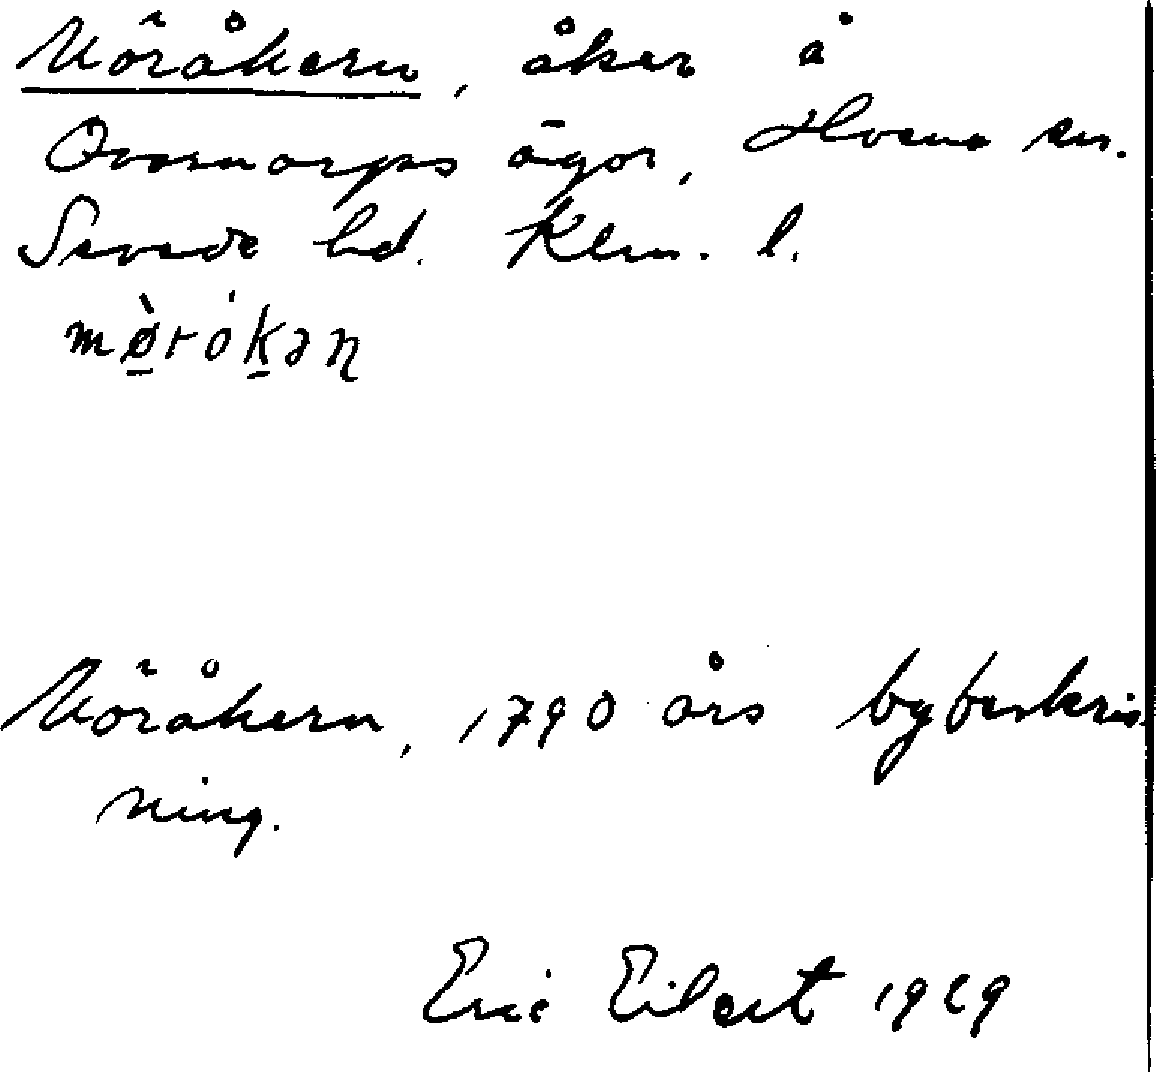 Möråkern, åker å
Ovarnarps ägor,
Sevede hd. Klm. l.
mø̀rókan
Möråkern, 1790 års bybeskriv-
ning.
Eric Eilert 1929